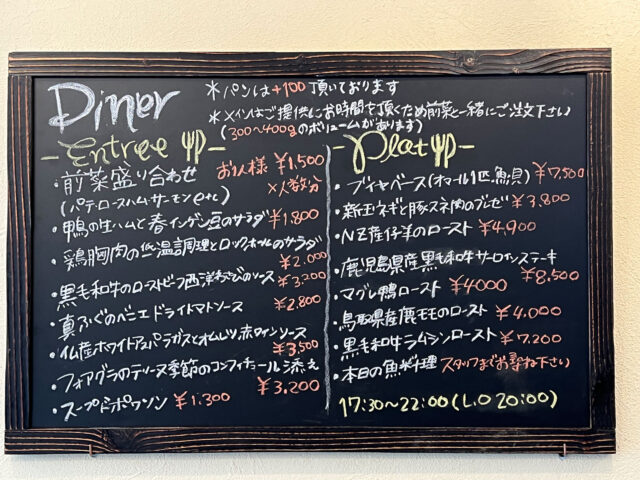 Diner
*パンは+100頂いております
*メインはご提供にお時間を頂くため前菜と一緒にご注文下さい
(300〜400gのボリュームがあります)
-Entree-
・前菜盛り合わせ お1人様 ¥1,500
(パテ・ロースハム・サーモン etc) ×人数分
・鴨の生ハムと春インゲン豆のサラダ ¥1,800
・鶏胸肉の低温調理とロックホールのサラダ
¥2,000
・黒毛和牛のローストビーフ西洋わさびのソース ¥3,200
・真ふぐのベニエ ドライトマトソース ¥2,800
・仏産ホワイトアスパラガスとオムレツ、赤ワインソース
¥3,500
・フォアグラのテリーヌ季節のコンフィチュール添え
¥3,200
・スープドポワソン ¥1,300
-Plat-
・ブイヤベース(オマール1匹 魚貝) ¥7,500
・新玉ネギと豚スネ肉のブレゼ ¥3,800
・NZ産仔羊のロースト ¥4,900
・鹿児島県産黒毛和牛サーロインステーキ
¥8,500
・マグレ鴨ロースト ¥4000
・鳥取県産鹿モモのロースト ¥4,000
・黒毛和牛ラムシンロースト ¥7,200
・本日の魚料理 スタッフまでお尋ね下さい
17:30〜22:00(L.O 20:00)